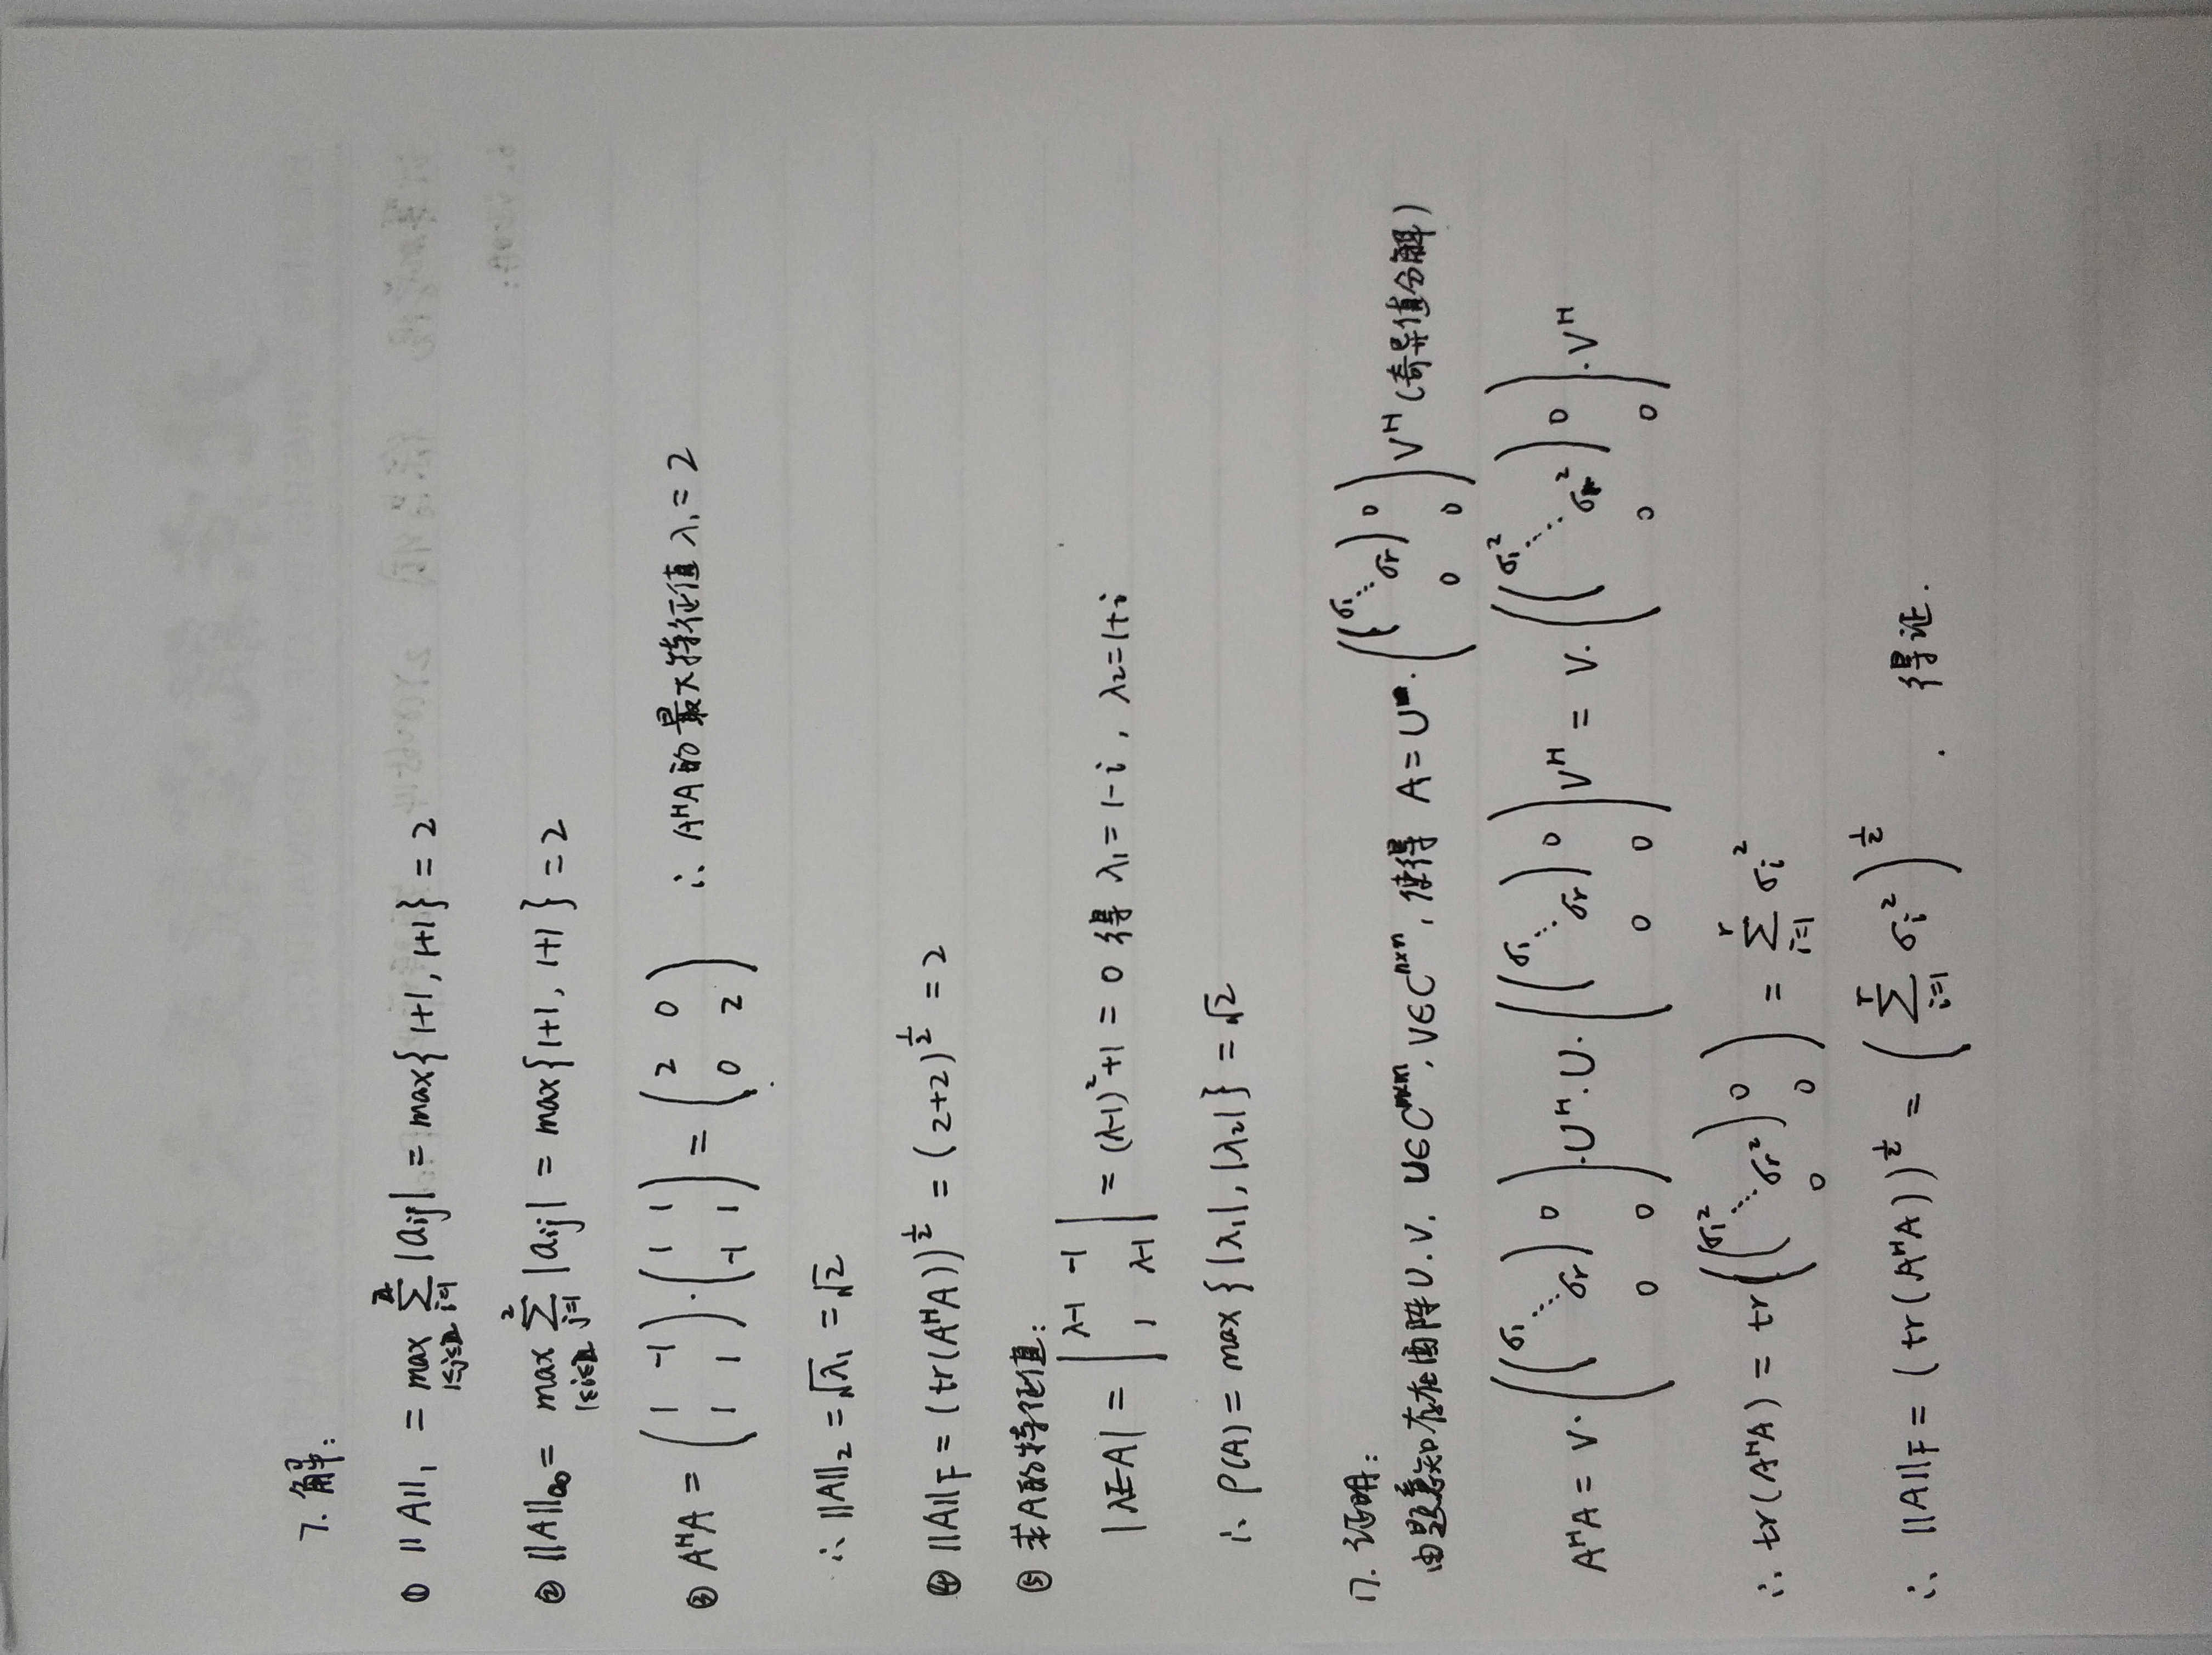 7. 解:
① ||A||₁ = max 1≤j≤2 ∑ i=1 |aij| = max{1+1, 1+1} = 2
② ||A||∞ = max 1≤i≤2 ∑ j=1 2 |aij| = max{1+1, 1+1} = 2
③ AᴴA = (1 -1; 1 1)·(1 1; -1 1) = (2 0; 0 2) ∴ AᴴA的最大特征值λ₁=2
∴ ||A||₂ = √λ₁ = √2
④ ||A||F = (tr(AᴴA))^½ = (2+2)^½ = 2
⑤ 求A的特征值:
|λE-A| = |λ-1 -1; 1 λ-1| = (λ-1)²+1 = 0 得 λ₁=1-i, λ₂=1+i
∴ ρ(A) = max{|λ₁|, |λ₂|} = √2
17. 证明:
由题意知存在酉阵U.V. U∈C^m×m, V∈C^n×n, 使得 A=U·((σ₁ ⋱ σr) 0; 0 0)Vᴴ(奇异值分解)
AᴴA = V·((σ₁ ⋱ σr) 0; 0 0)·Uᴴ·U·((σ₁ ⋱ σr) 0; 0 0)Vᴴ = V·((σ₁² ⋱ σr²) 0; 0 0)·Vᴴ
∴ tr(AᴴA) = tr((σ₁² ⋱ σr²) 0; 0 0) = ∑ i=1 r σi²
∴ ||A||F = (tr(AᴴA))^½ = (∑ i=1 r σi²)^½ . 得证.